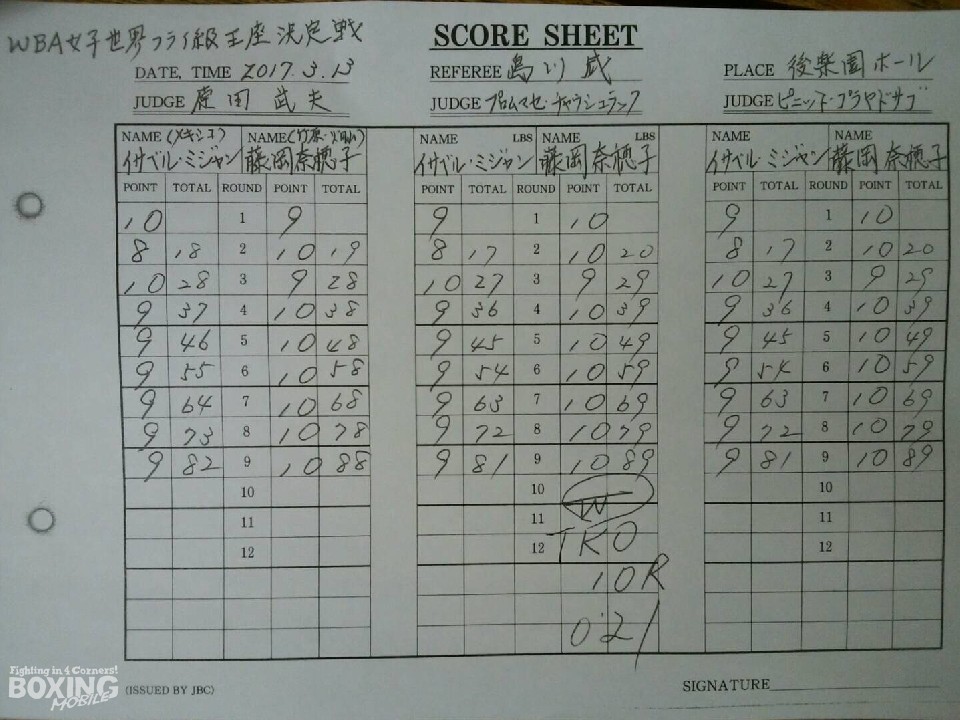 WBA女子世界フライ級王座決定戦
SCORE SHEET
DATE, TIME 2017.3.13 REFEREE 島川 威 PLACE 後楽園ホール
JUDGE 原田 武夫 JUDGE プロムマセ・チャウシュラック JUDGE ピニット・プラヤドサブ
NAME (メキシコ) NAME (竹原・畑山) NAME LBS NAME LBS NAME NAME
イサベル・ミジャン 藤岡奈穂子 イサベル・ミジャン 藤岡奈穂子 イサベル・ミジャン 藤岡奈穂子
POINT TOTAL ROUND POINT TOTAL POINT TOTAL ROUND POINT TOTAL POINT TOTAL ROUND POINT TOTAL
10 1 9 9 1 10 9 1 10
8 18 2 10 19 8 17 2 10 20 8 17 2 10 20
10 28 3 9 28 10 27 3 9 29 10 27 3 9 29
9 37 4 10 38 9 36 4 10 39 9 36 4 10 39
9 46 5 10 48 9 45 5 10 49 9 45 5 10 49
9 55 6 10 58 9 54 6 10 59 9 54 6 10 59
9 64 7 10 68 9 63 7 10 69 9 63 7 10 69
9 73 8 10 78 9 72 8 10 79 9 72 8 10 79
9 82 9 10 88 9 81 9 10 89 9 81 9 10 89
10 10 W 10
11 11 11
12 12 TKO 12
10R
0:21
(ISSUED BY JBC) SIGNATURE
Fighting in 4 Corners!
BOXING
MOBILE